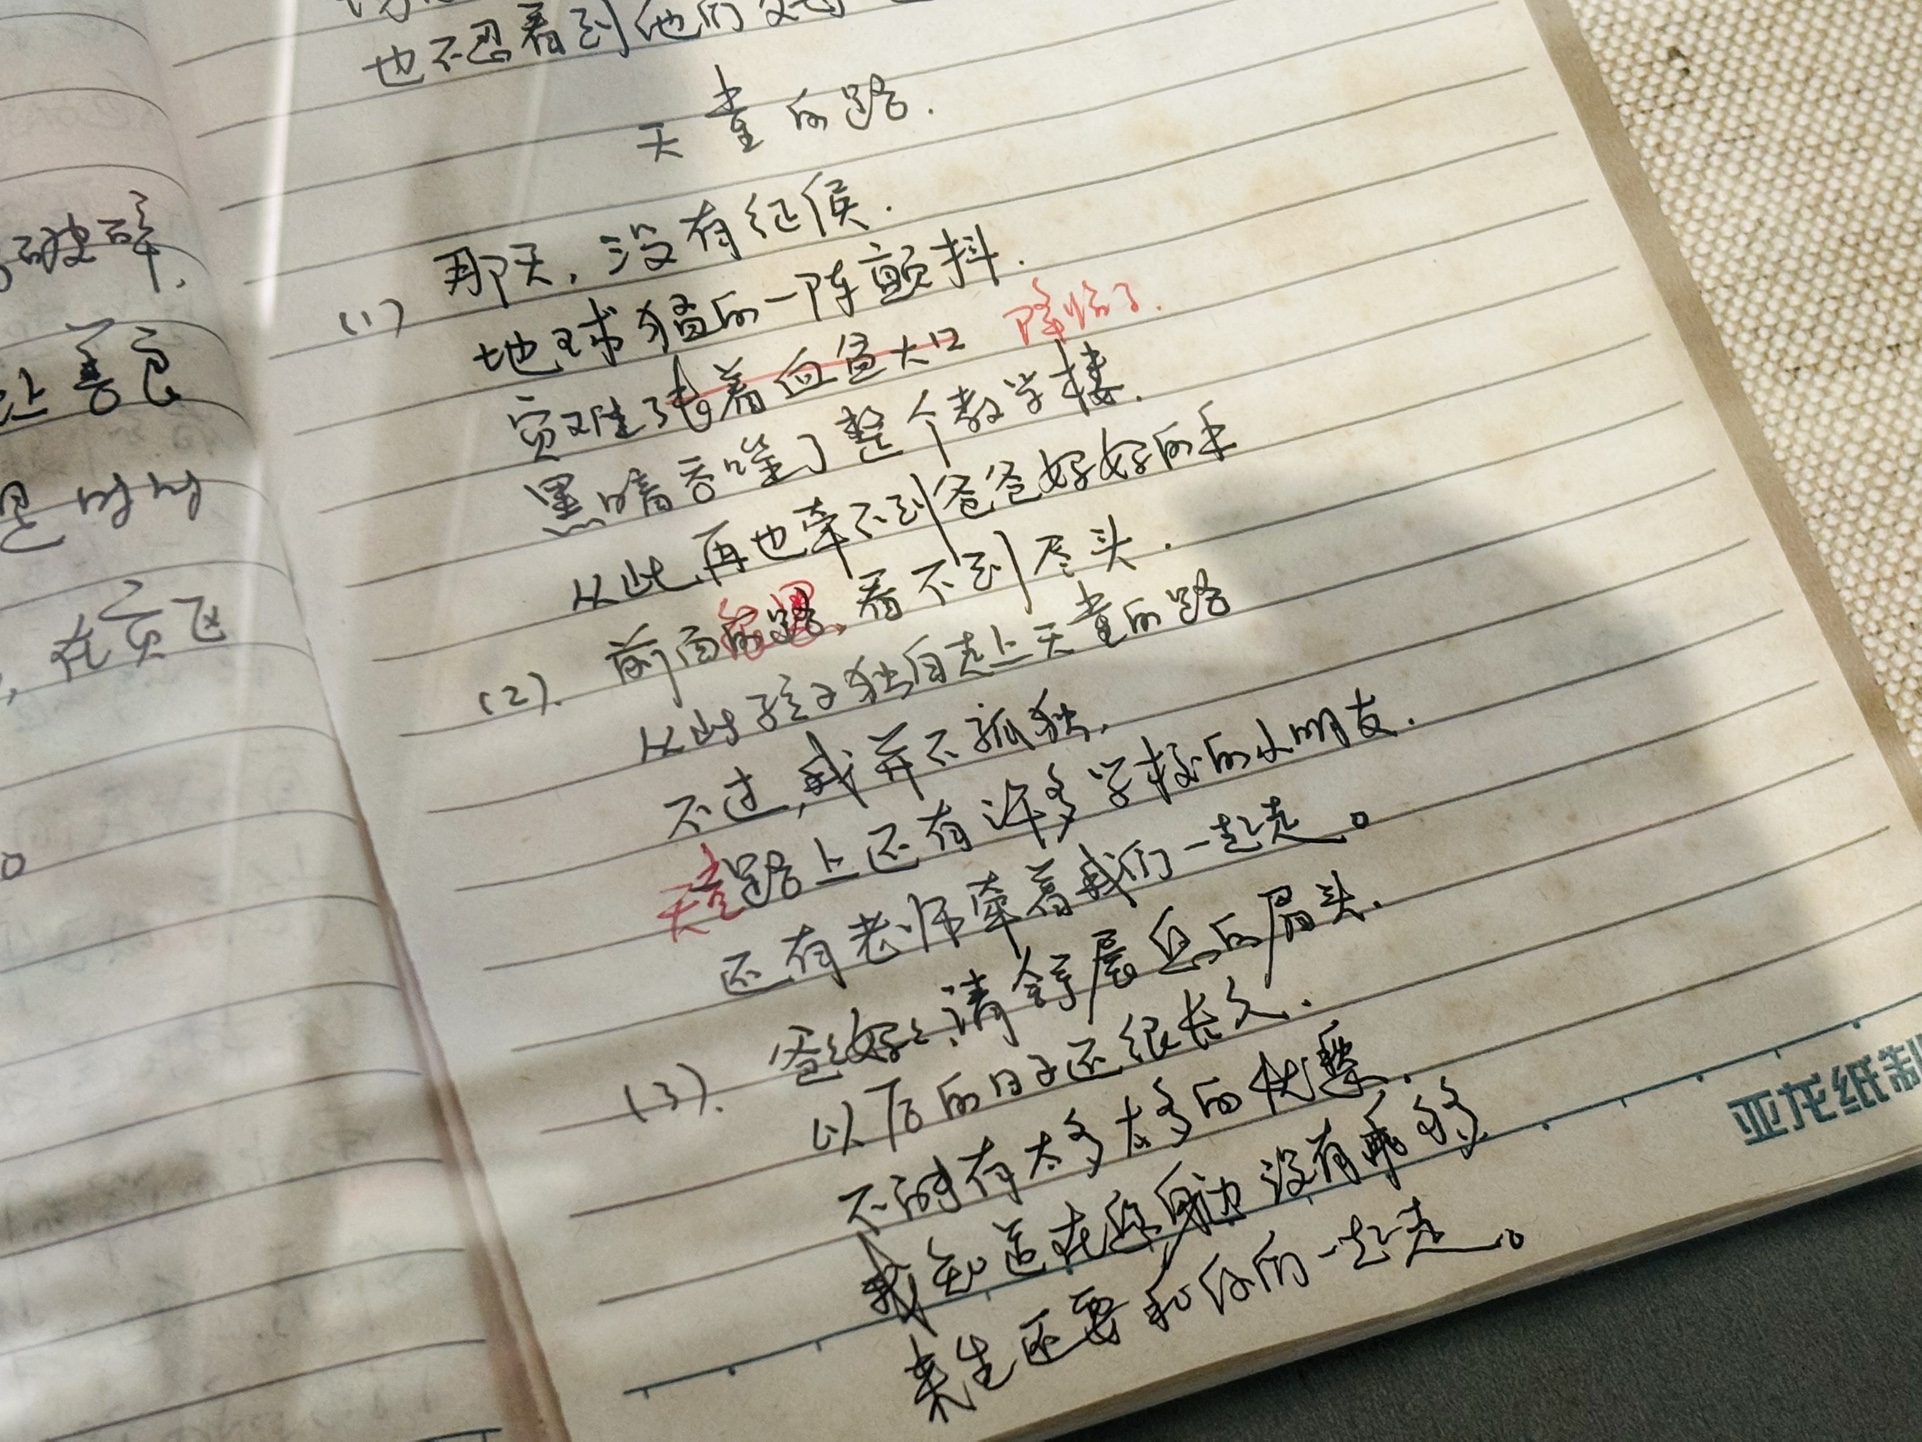 破碎.
让善良
是时时
也不忍看到他们
天堂的路.
(1) 那天,没有征候.
地球猛的一阵颤抖.
灾难张着血盆大口 降临了.
黑暗吞噬了整个教学楼.
从此,再也牵不到爸爸妈妈的手
(2). 前面 看不到尽头.
从此孩子独自走上天堂的路
不过,我并不孤独,
天堂路上还有许多学校的小朋友.
还有老师牵着我们一起走。
(3). 爸爸妈妈,请舒展您的眉头.
以后的日子还很长久.
不能有太多太多的忧愁.
我知道在您身边没有乖够
来生还要和你们一起走。
亚龙纸制